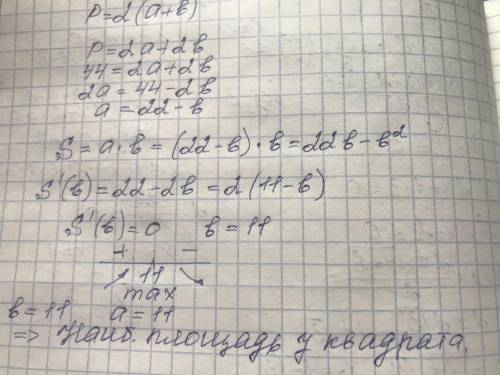 P=2(a+b)
P=2a+2b
44=2a+2b
2a=44-2b
a=22-b
S=a·b=(22-b)·b=22b-b²
S'(b)=22-2b=2(11-b)
S'(b)=0 b=11
+ -
11
max
b=11 a=11
=> Наиб. площадь у квадрата.